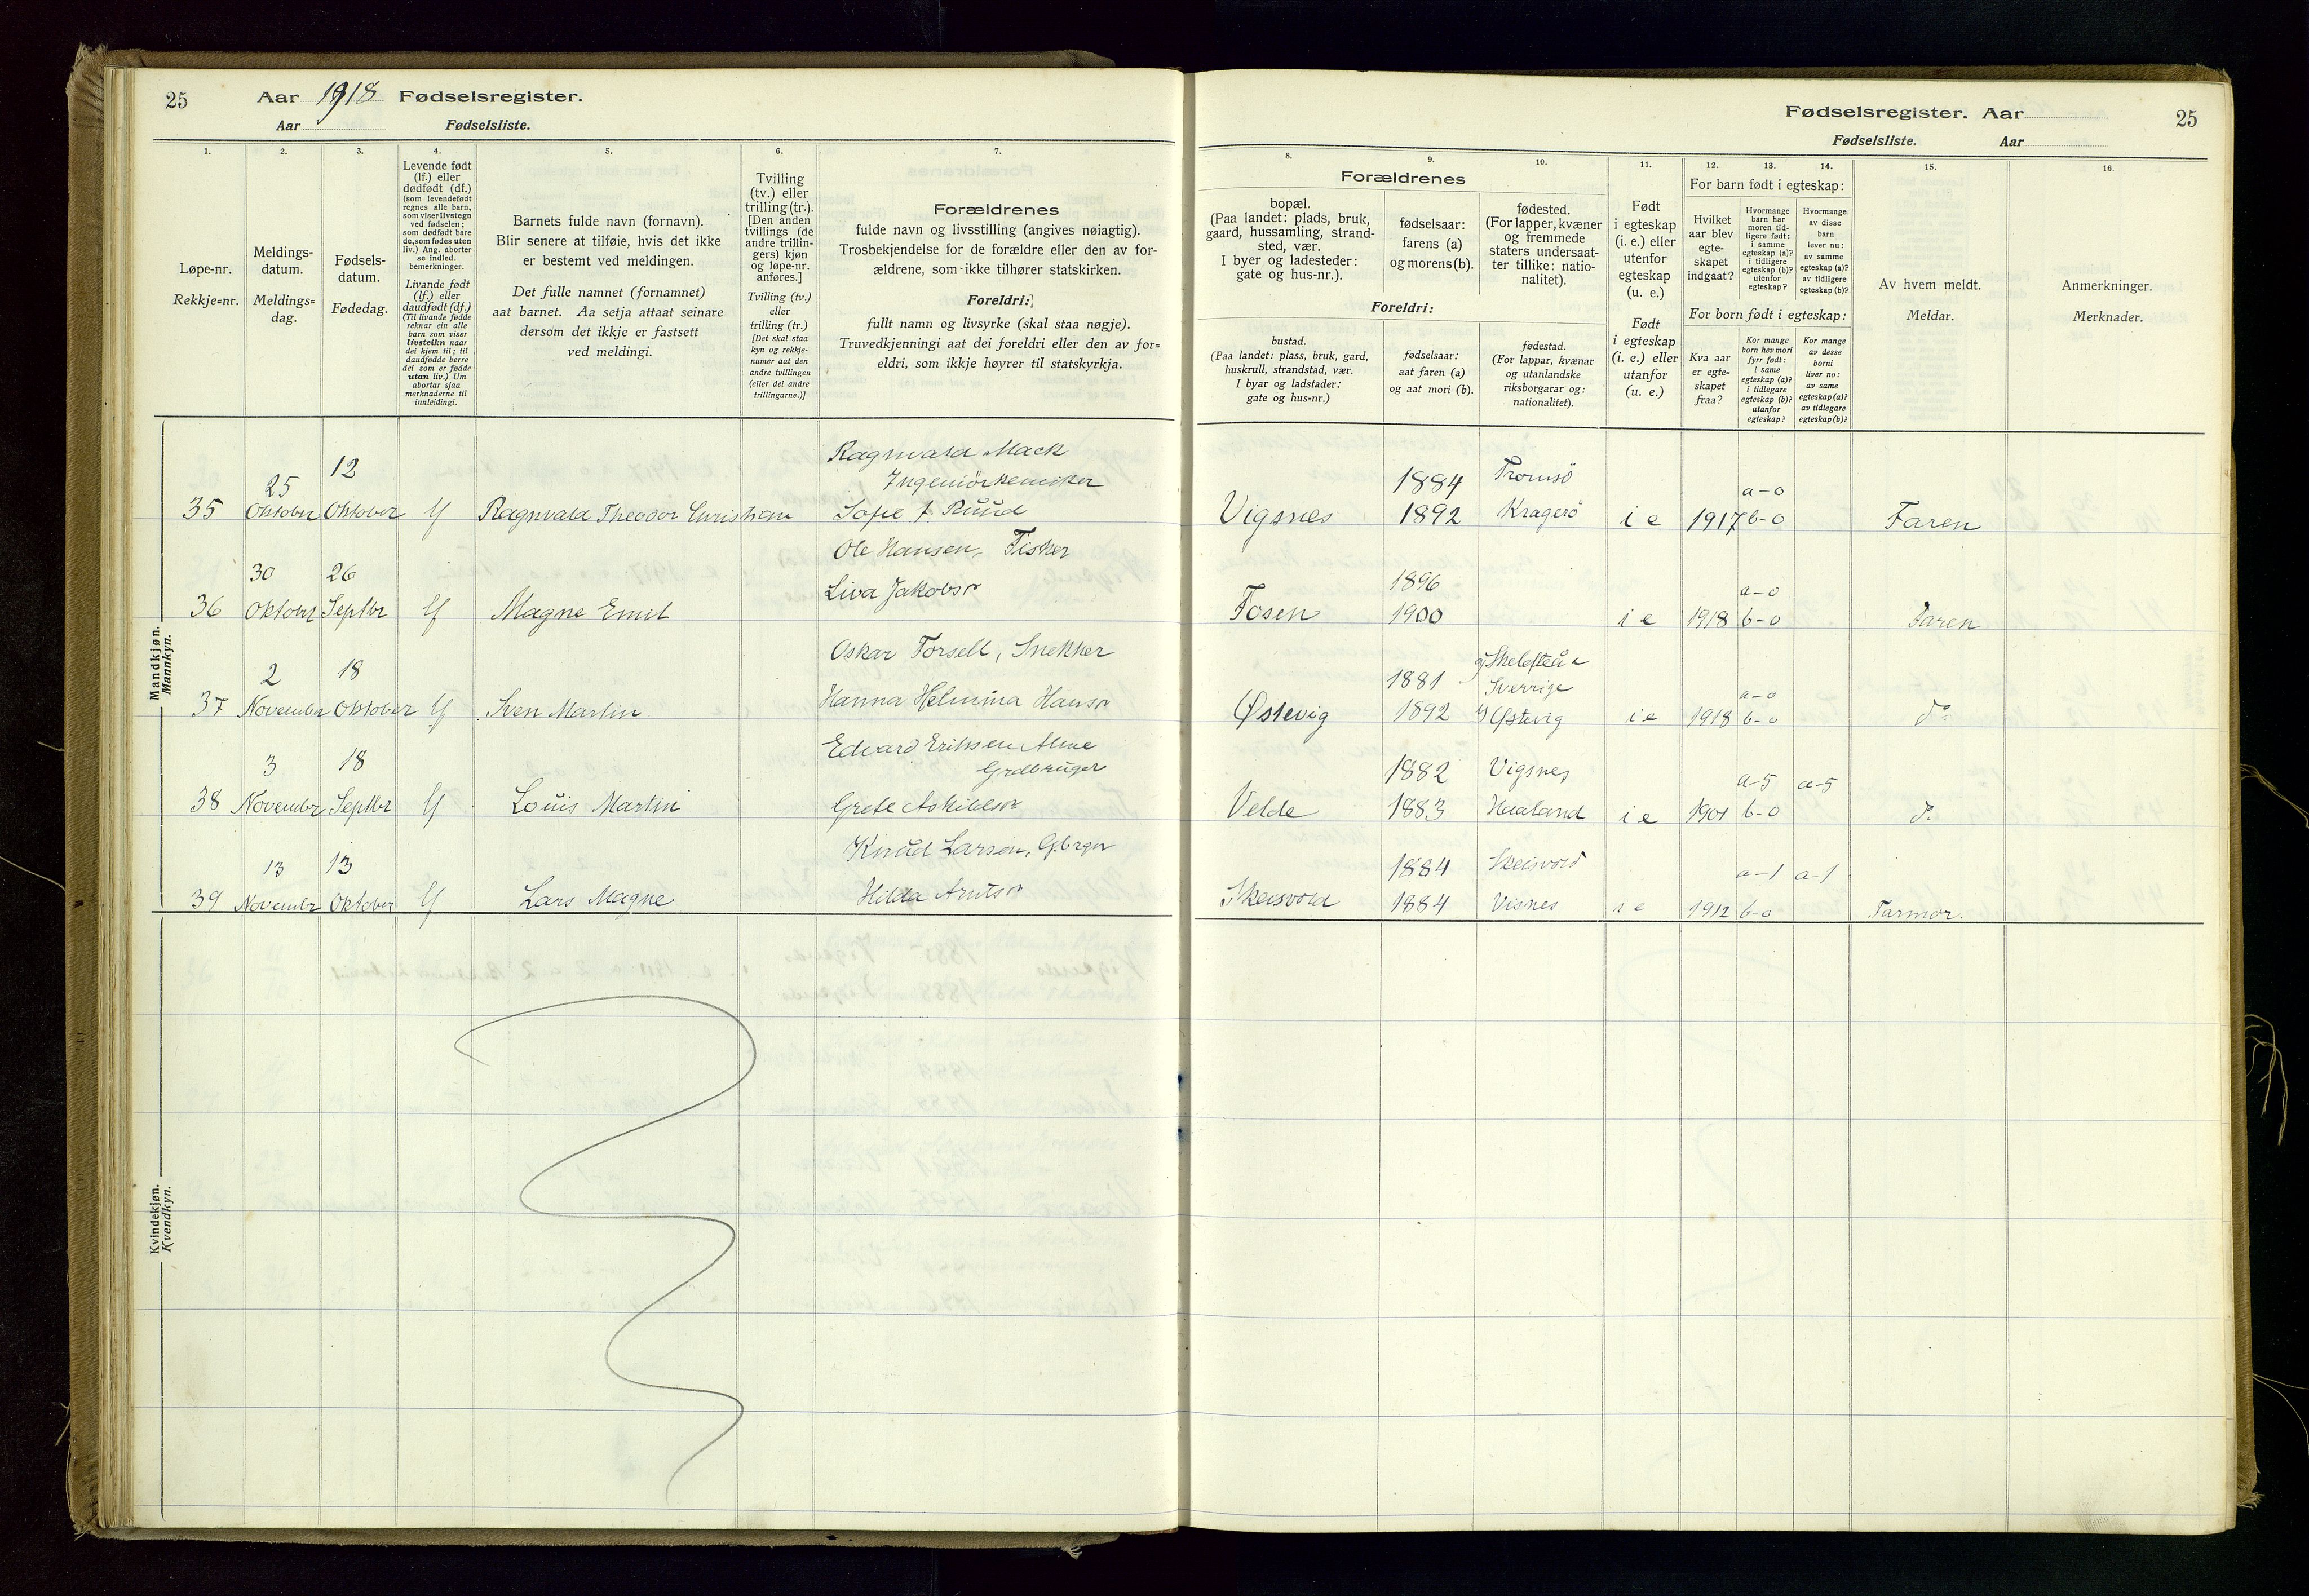 25 Aar 1918 Fødselsregister.
Aar Fødselsliste.
Fødselsregister. Aar 25
Fødselsliste. Aar
1.
Løpe-nr.
Rekkje=nr.
2.
Meldings-
datum.
Meldings=
dag.
3.
Fødsels-
datum.
Fødedag.
4.
Levende født
(lf.) eller
dødfødt (df.)
(som levendefødt
regnes alle barn,
som viser livstegn
ved fødselen;
som dødfødt bare
de, som fødes uten
liv.) Ang. aborter
se indled.
bemerkninger.
Livande født
(lf.) eller
daudfødt (df.)
(Til livande fødde
reknar ein alle
barn som viser
livsteikn naar
dei kjem til; til
daudfødde berre
dei som er fødde
utan liv.) Um
abortar sjaa
merknaderne til
innleidingi.
5.
Barnets fulde navn (fornavn).
Blir senere at tilføie, hvis det ikke
er bestemt ved meldingen.
Det fulle namnet (fornamnet)
aat barnet. Aa setja attaat seinare
dersom det ikkje er fastsett
ved meldingi.
6.
Tvilling
(tv.) eller
trilling (tr.).
[Den anden
tvillings (de
andre trillin-
gers) kjøn
og løpe-nr.
anføres.]
Tvilling (tv.)
eller
trilling (tr.)
[Det skal staa
kyn og rekkje-
numer aat den
andre tvillingen
(eller dei andre
trillingarne.)]
7.
Forældrenes
fulde navn og livsstilling (angives nøiagtig).
Trosbekjendelse for de forældre eller den av for-
ældrene, som ikke tilhører statskirken.
Foreldri:
fullt namn og livsyrke (skal staa nøgje).
Truvedkjenningi aat dei foreldri eller den av for=
eldri, som ikkje høyrer til statskyrkja.
Forældrenes
8.
bopæl.
(Paa landet: plads, bruk,
gaard, hussamling, strand-
sted, vær.
I byer og ladesteder:
gate og hus-nr.).
9.
fødselsaar:
farens (a)
og morens (b).
10.
fødested.
(For lapper, kvæner
og fremmede
staters undersaat-
ter tillike: natio-
nalitet).
Foreldri:
bustad.
(Paa landet: plass, bruk, gard,
huskrull, strandstad, vær.
I byar og ladstader:
gate og hus=nr.)
fødselsaar:
aat faren (a)
og aat mori (b).
fødestad.
(For lappar, kvænar
og utanlandske
riksborgarar og:
nationalitet).
11.
Født
i egteskap
(i. e.) eller
utenfor
egteskap
(u. e.)
Født
i egteskap
(i. e.) eller
utanfor
(u. e.)
12. 13. 14.
For barn født i egteskap:
Hvilket
aar blev
egte-
skapet
indgaat?
Hvormange
barn har
moren tid-
ligere født:
i samme
egteskap (a)?
i tidligere
egteskap (b)?
utenfor
egteskap?
Hvormange
av disse
barn
lever nu:
av samme
egteskap (a)?
av tidligere
egteskap (b)?
For born født i egteskap:
Kva aar
er egte=
skapet
fraa?
Kor mange
born hev mori
fyrr født:
i same
egteskap (a)?
i tidlegare
egteskap (b)?
utanfor
egteskap?
Kor mange
av desse
borni
liver no:
av same
egteskap (a)?
av tidlegare
egteskap (b)?
15.
Av hvem meldt.
Meldar.
16.
Anmerkninger.
Merknader.
Mandkjøn.
Mannkyn.
Ragnvald Mack
12 Ingeniörkemiker 1884 Tromsö a-0
25
35 Oktober Oktober lf Ragnvald Theodor Christian Sofie f. Ruud Vigsnes 1892 Kragerö i e 1917 b-0 Faren
Ole Hansen, Fisker
30 26 Liva Jakobsr 1896 a-0
36 Oktobr Septbr lf Magne Emil Fosen 1900 i e 1918 b-0 Faren
Oskar Forsell, Snekker a) Skelefteå
2 18 1881 Sverrige a-0
37 Novembr Oktober lf Sven Martin Hanna Helmina Hansr Østevig 1892 b) Østevig i e 1918 b-0 do
Edvard Eriksen Alme
3 18 Grdbruger 1882 Vigsnes a-5 a-5
38 Novembr Septbr lf Louis Martin Grete Askildsr Velde 1883 Haaland i e 1901 b-0 do
Knud Larsen, Gbrger
13 13 1884 Skeisvold a-1 a-1
39 Novembr Oktober lf Lars Magne Hilda Arntsr Skeisvold 1884 Visnes i e 1912 b-0 Farmor.
Kvindekjøn.
Kvendkyn.